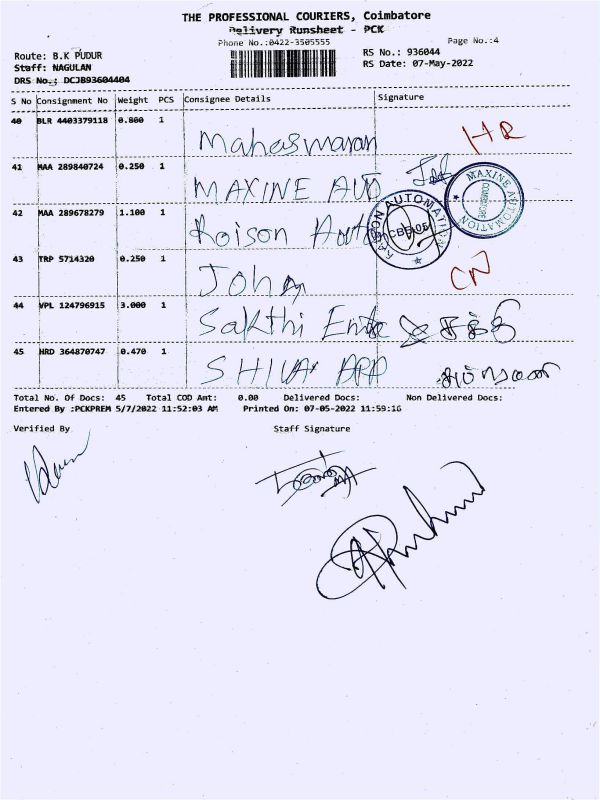 THE PROFESSIONAL COURIERS, Coimbatore
Delivery Runsheet - PCK
Phone No.:0422-3505555
Page No.:4
Route: B.K PUDUR
RS No.: 936044
Staff: NAGULAN
RS Date: 07-May-2022
DRS No.: DCJB93604404
S No Consignment No Weight PCS Consignee Details Signature
40 BLR 4403379118 0.800 1
Mahaswaran HR
41 MAA 289840724 0.250 1
MAXINE AUTO
MAXINE AUTOMATION
COIMBATORE
42 MAA 289678279 1.100 1
Roison Auto
AUTOMATION
43 TRP 5714320 0.250 1
John CN
44 VPL 124796915 3.000 1
Sakthi Ente சக்தி
45 HRD 364870747 0.470 1
SHIVA APP
Total No. Of Docs: 45 Total COD Amt: 0.00 Delivered Docs: Non Delivered Docs:
Entered By :PCKPREM 5/7/2022 11:52:03 AM Printed On: 07-05-2022 11:59:16
Verified By Staff Signature